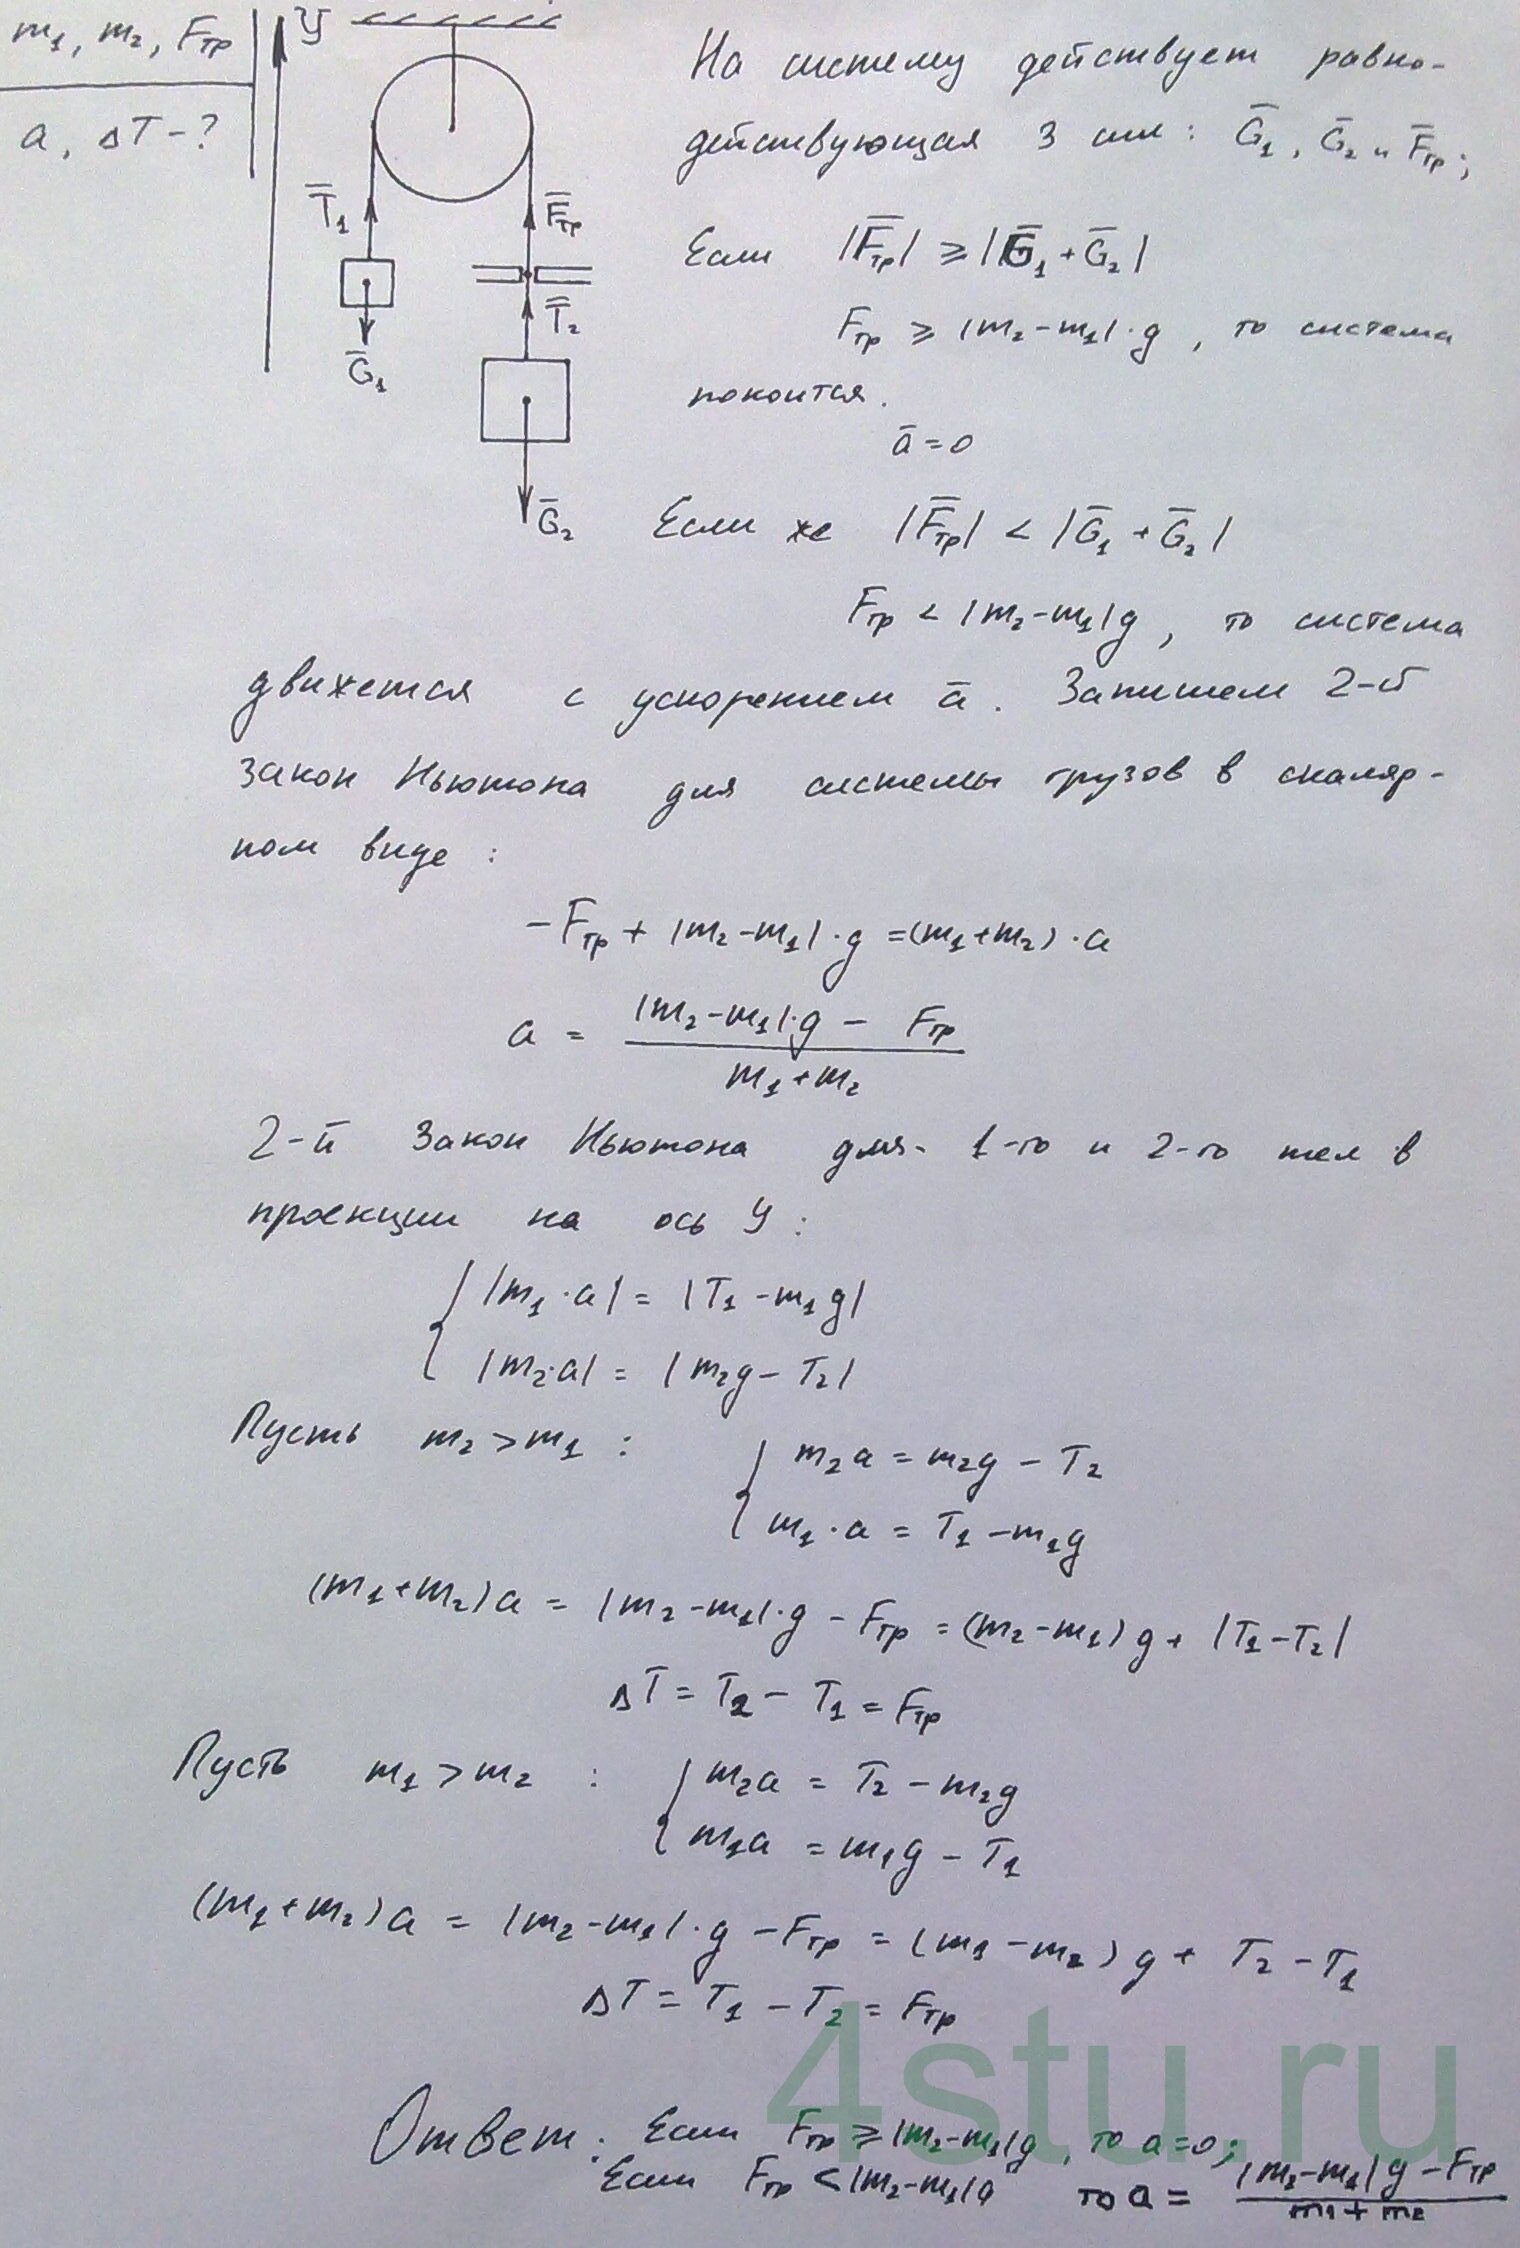 m₁, m₂, Fтр
a, ΔT - ?
У
T̄₁
F̄тр
T̄₂
Ḡ₁
Ḡ₂
На систему действует равно-
действующая 3 сил: Ḡ₁, Ḡ₂ и F̄тр;
Если |F̄тр| ⩾ |Ḡ₁ + Ḡ₂|
Fтр ⩾ |m₂ - m₁| · g, то система
покоится.
ā = 0
Если же |F̄тр| < |Ḡ₁ + Ḡ₂|
Fтр < |m₂ - m₁| g, то система
движется с ускорением ā. Запишем 2-й
закон Ньютона для системы грузов в скаляр-
ном виде:
- Fтр + |m₂ - m₁| · g = (m₁ + m₂) · a
a = (|m₂ - m₁| · g - Fтр) / (m₁ + m₂)
2-й Закон Ньютона для 1-го и 2-го тел в
проекции на ось У:
{ |m₁ · a| = |T₁ - m₁g|
|m₂ · a| = |m₂g - T₂|
Пусть m₂ > m₁ : { m₂a = m₂g - T₂
m₁ · a = T₁ - m₁g
(m₁ + m₂) a = |m₂ - m₁| · g - Fтр = (m₂ - m₁) g + |T₁ - T₂|
ΔT = T₂ - T₁ = Fтр
Пусть m₁ > m₂ : { m₂a = T₂ - m₂g
m₁a = m₁g - T₁
(m₁ + m₂) a = |m₂ - m₁| · g - Fтр = (m₁ - m₂) g + T₂ - T₁
ΔT = T₁ - T₂ = Fтр
4stu.ru
Ответ: Если Fтр ⩾ |m₂ - m₁| g, то a = 0;
Если Fтр < |m₂ - m₁| g то a = (|m₂ - m₁| g - Fтр) / (m₁ + m₂)